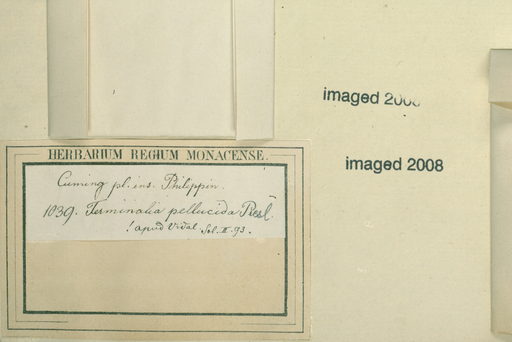 imaged 2008
imaged 2008
HERBARIUM REGIUM MONACENSE.
Cuming pl. ins. Philippin.
1039. Terminalia pellucida Presl
! apud Vidal Sol. II. 93.